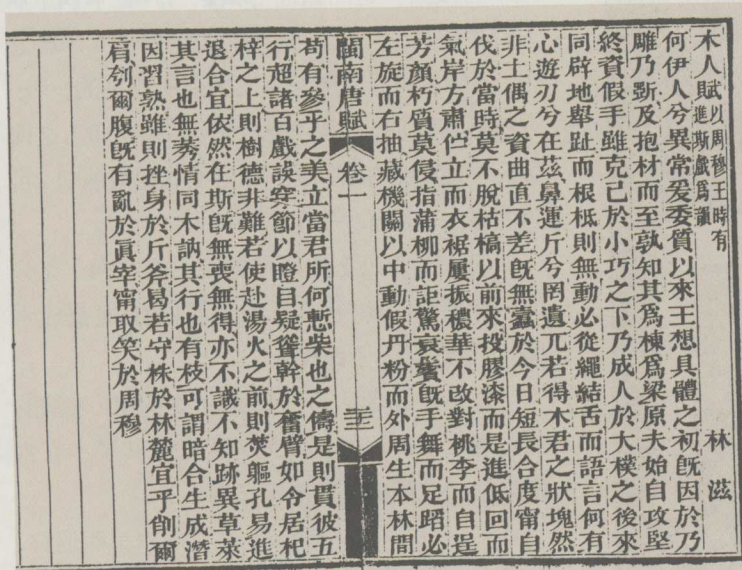 木人賦以周穆王時有進斯戲爲韻 林滋
何伊人兮異常爰委質以來王想具體之初既因於乃
雕乃斲及抱材而至孰知其爲棟爲梁原夫始自攻堅
終資假手雖克己於小巧之下乃成人於大樸之後來
同辟地舉趾而根柢則無動必從繩結舌而語言何有
心遊刃兮在茲鼻運斤兮罔遺兀若得木君之狀塊然
非土偶之資曲直不差既無蠹於今日短長合度甯自
伐於當時莫不脫枯槁以前來投膠漆而是進低回而
氣岸方肅伫立而衣裾屢振穠華不改對桃李而自逞
芳顏朽質莫侵指蒲柳而詎驚衰鬢既手舞而足蹈必
左旋而右抽藏機關以中動假丹粉而外周生本林間
閩南唐賦 卷一 三三
苟有參乎之美立當君所何慙柴也之儔是則貫彼五
行超諸百戲誤穿節以瞪目疑聳幹於奮臂如令居杞
梓之上則樹德非難若使赴湯火之前則焚軀孔易進
退合宜依然在斯既無喪無得亦不識不知跡異草萊
其言也無莠情同木訥其行也有枝可謂暗合生成潛
因習熟雖則挫身於斤斧曷若守株於林麓宜乎削爾
肩刳爾腹既有亂於眞宰甯取笑於周穆